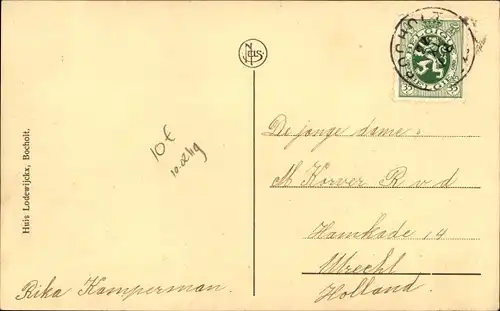 Huis Lodewijckx, Bocholt.
NELS
BOCHOLT
BELGIQUE
35 35
BELGIË
10€
De jonge dame:
M Korver R v d
Hamkade 14
Utrecht
Holland.
Rika Kamperman.